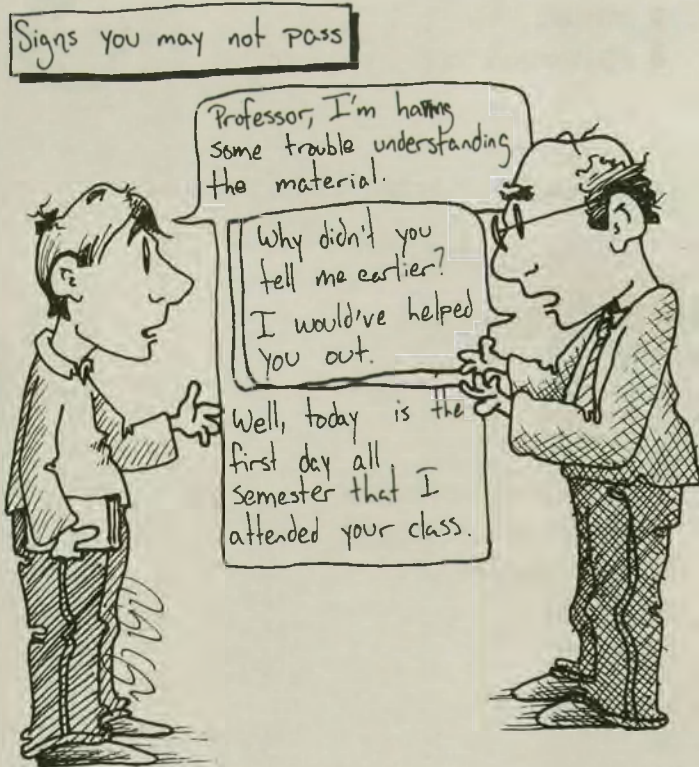 Signs you may not pass
Professor, I'm having
some trouble understanding
the material.
Why didn't you
tell me earlier?
I would've helped
you out.
Well, today is the
first day all
semester that I
attended your class.